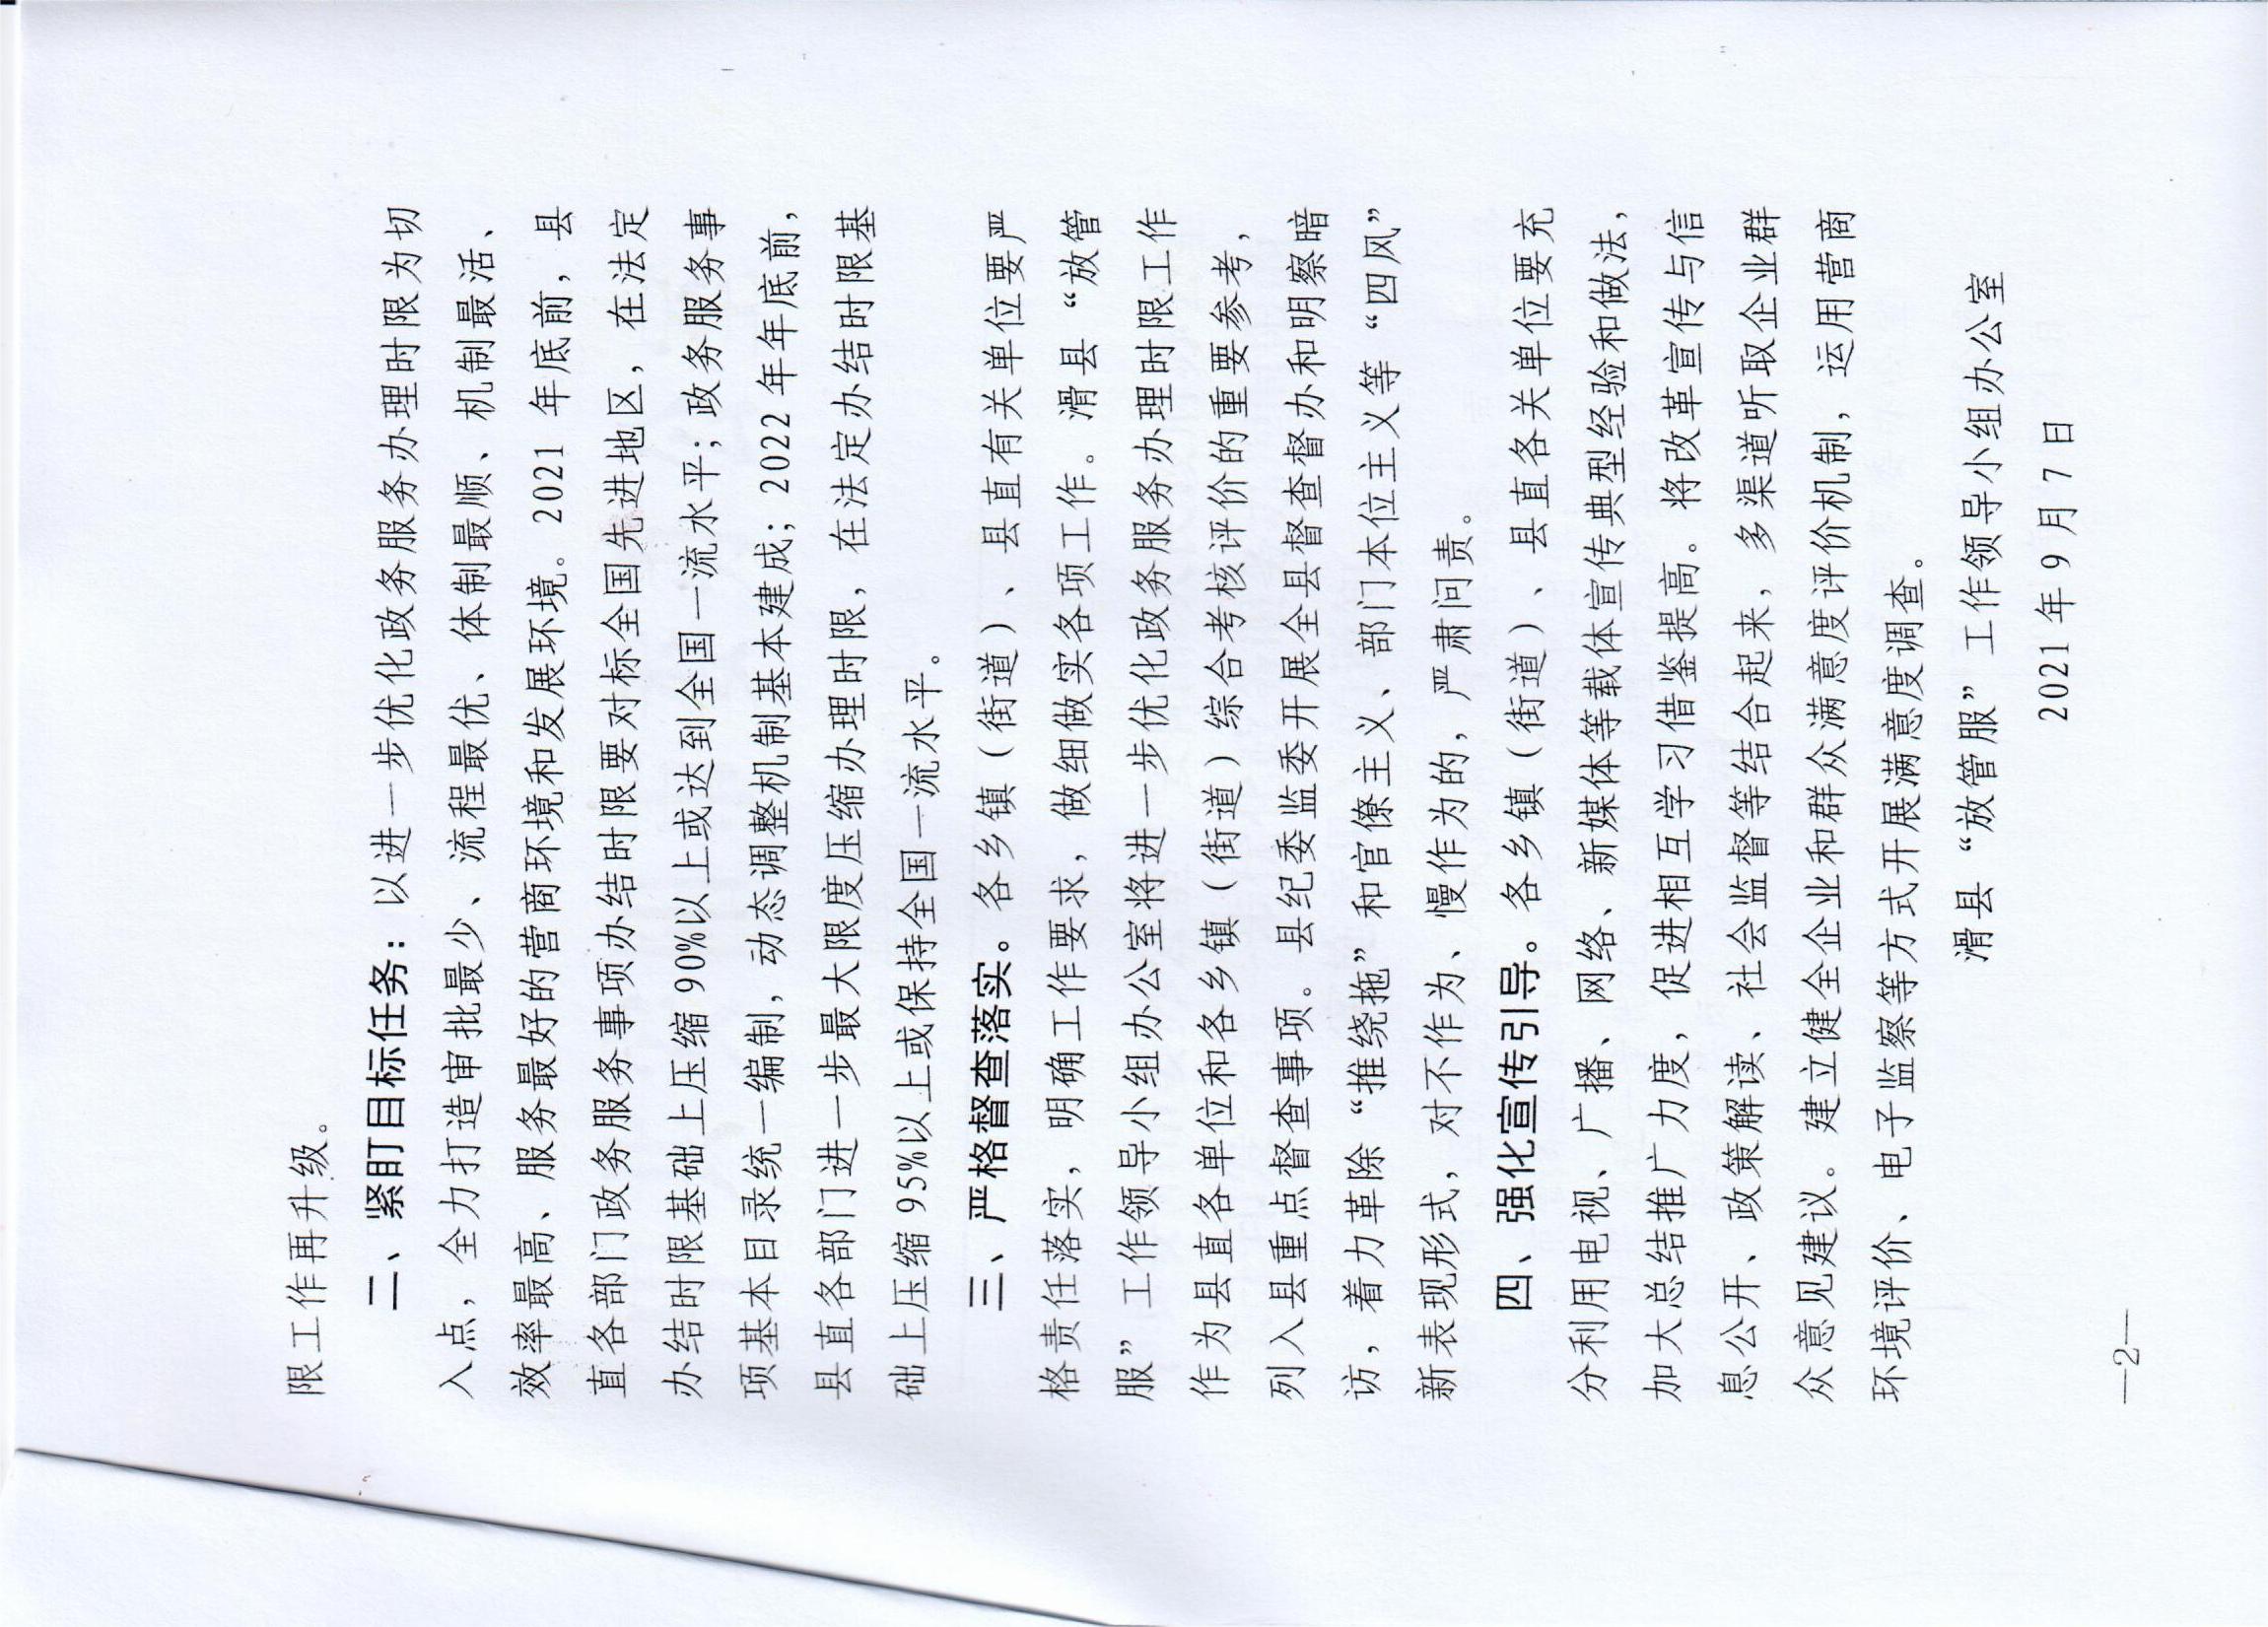 限工作再升级。
二、紧盯目标任务：以进一步优化政务服务办理时限为切
入点，全力打造审批最少、流程最优、体制最顺、机制最活、
效率最高、服务最好的营商环境和发展环境。2021 年底前，县
直各部门政务服务事项办结时限要对标全国先进地区，在法定
办结时限基础上压缩 90%以上或达到全国一流水平；政务服务事
项基本目录统一编制，动态调整机制基本建成；2022 年年底前，
县直各部门进一步最大限度压缩办理时限，在法定办结时限基
础上压缩 95%以上或保持全国一流水平。
三、严格督查落实。各乡镇（街道）、县直有关单位要严
格责任落实，明确工作要求，做细做实各项工作。滑县“放管
服”工作领导小组办公室将进一步优化政务服务办理时限工作
作为县直各单位和各乡镇（街道）综合考核评价的重要参考，
列入县重点督查事项。县纪委监委开展全县督查督办和明察暗
访，着力革除“推绕拖”和官僚主义、部门本位主义等“四风”
新表现形式，对不作为、慢作为的，严肃问责。
四、强化宣传引导。各乡镇（街道）、县直各关单位要充
分利用电视、广播、网络、新媒体等载体宣传典型经验和做法，
加大总结推广力度，促进相互学习借鉴提高。将改革宣传与信
息公开、政策解读、社会监督等结合起来，多渠道听取企业群
众意见建议。建立健全企业和群众满意度评价机制，运用营商
环境评价、电子监察等方式开展满意度调查。
滑县“放管服”工作领导小组办公室
2021 年 9 月 7 日
—2—